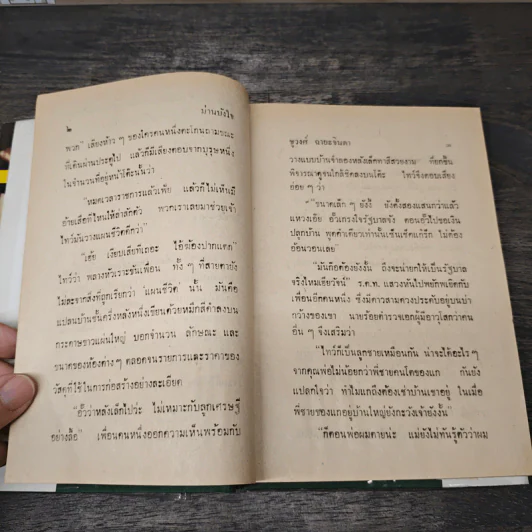 ๒
ม่านบังใจ
พวก” เสียงห้าว ๆ ของใครคนหนึ่งตะโกนถามขณะ
ที่เดินผ่านประตูไป แล้วก็มีเสียงตอบจากบุรุษหนึ่ง
ในจำนวนที่อยู่หน้าโต๊ะนั้นว่า
“หมดเวลาราชการแล้วเพ้ย แล้วก็ไม่เห็นมี
อ้ายเสือที่ไหนให้ล่าสักตัว พวกเราเลยมาช่วยเจ้า
ไทว์มันวางแผนชีวิตดีกว่า”
“เฮ้ย เงียบเสียทีเถอะ ไอ้ห้องปากแตก”
ไทว์ว่า พลางหัวเราะขันเพื่อน ทั้ง ๆ ที่สายตายัง
ไม่ละจากสิ่งที่ถูกเรียกว่า ‘แผนชีวิต’ นั้น มันคือ
แปลนบ้านชั้นครึ่งหลังหนึ่งเขียนด้วยหมึกสีดำลงบน
กระดาษขาวแผ่นใหญ่ บอกจำนวน ลักษณะ และ
ขนาดของห้องต่างๆ ตลอดจนรายการและราคาของ
วัสดุที่ใช้ในการก่อสร้างอย่างละเอียด
“อั๊วว่าหลังเล็กไปว่ะ ไม่เหมาะกับลูกเศรษฐี
อย่างลื้อ” เพื่อนคนหนึ่งออกความเห็นพร้อมกับ
ชูวงศ์ ฉายะจินดา
๓
วางแบบบ้านจำลองหลังเล็กทาสีสวยงาม ที่ยกขึ้น
พิจารณาดูจนใกล้ชิดลงบนโต๊ะ ไทว์จึงตอบเสียง
อ่อย ๆ ว่า
“ขนาดเล็ก ๆ ยังงี้ ยังตั้งสองแสนกว่าแล้ว
แหวงเอ๊ย อั๊วเกรงใจรัฐบาลจัง ตอนอั๊วไปขอเงิน
ปลูกบ้าน พูดคำเดียวเท่านั้นเซ็นเช็คแก๊รก ไม่ต้อง
อ้อนวอนเลย”
“มันก็อต้องยังงั้น ถึงจะน่ายกให้เป็นรัฐบาล
จริงไหมเอียวัจน์” ร.ต.ท. แสวงหันไปพยักพเยิดกับ
เพื่อนอีกคนหนึ่ง ซึ่งมีดาวสามดวงประดับอยู่บนบ่า
กว้างของเขา นายร้อยตำรวจเอกผู้มีอาวุโสกว่าคน
อื่น ๆ จึงเสริมว่า
“ไทว์ก็เป็นลูกชายเหมือนกัน น่าจะได้อะไร ๆ
จากคุณพ่อไม่น้อยกว่าพี่ชายคนโตของแก กันยัง
แปลกใจว่า ทำไมแกถึงต้องเช่าบ้านเขาอยู่ ในเมื่อ
พี่ชายของแกอยู่บ้านใหญ่ยังกะวังเจ้ายังงั้น”
“ก็ตอนพ่อผมตายน่ะ แม่ยังไม่ทันรู้ตัวว่าผม